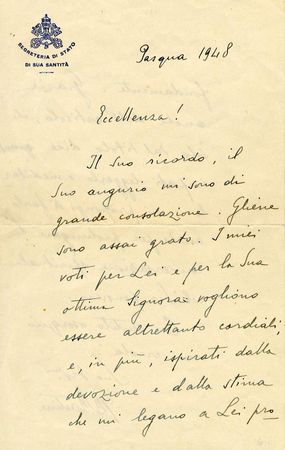 SEGRETERIA DI STATO
DI SUA SANTITÀ
Pasqua 1948
Eccellenza!
Il Suo ricordo, il
Suo augurio mi sono di
grande consolazione. Gliene
sono assai grato. I miei
voti per Lei e per la Sua
ottima Signora vogliono
essere altrettanto cordiali,
e, in più, ispirati dalla
devozione e dalla stima
che mi legano a Lei pro